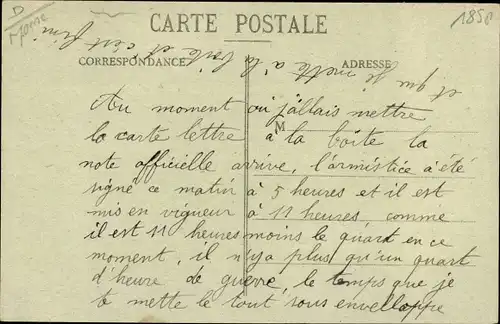 D
1850
CARTE POSTALE
CORRESPONDANCE
ADRESSE
M
Au moment où j'allais mettre
la carte lettre à la boîte la
note officielle arrive, l'armistice a été
signé ce matin à 5 heures et il est
mis en vigueur à 11 heures comme
il est 11 heures moins le quart en ce
moment, il n'y a plus qu'un quart
d'heure de guerre, le temps que je
te mette le tout sous enveloppe
et que je mette à la boîte et c'est fini